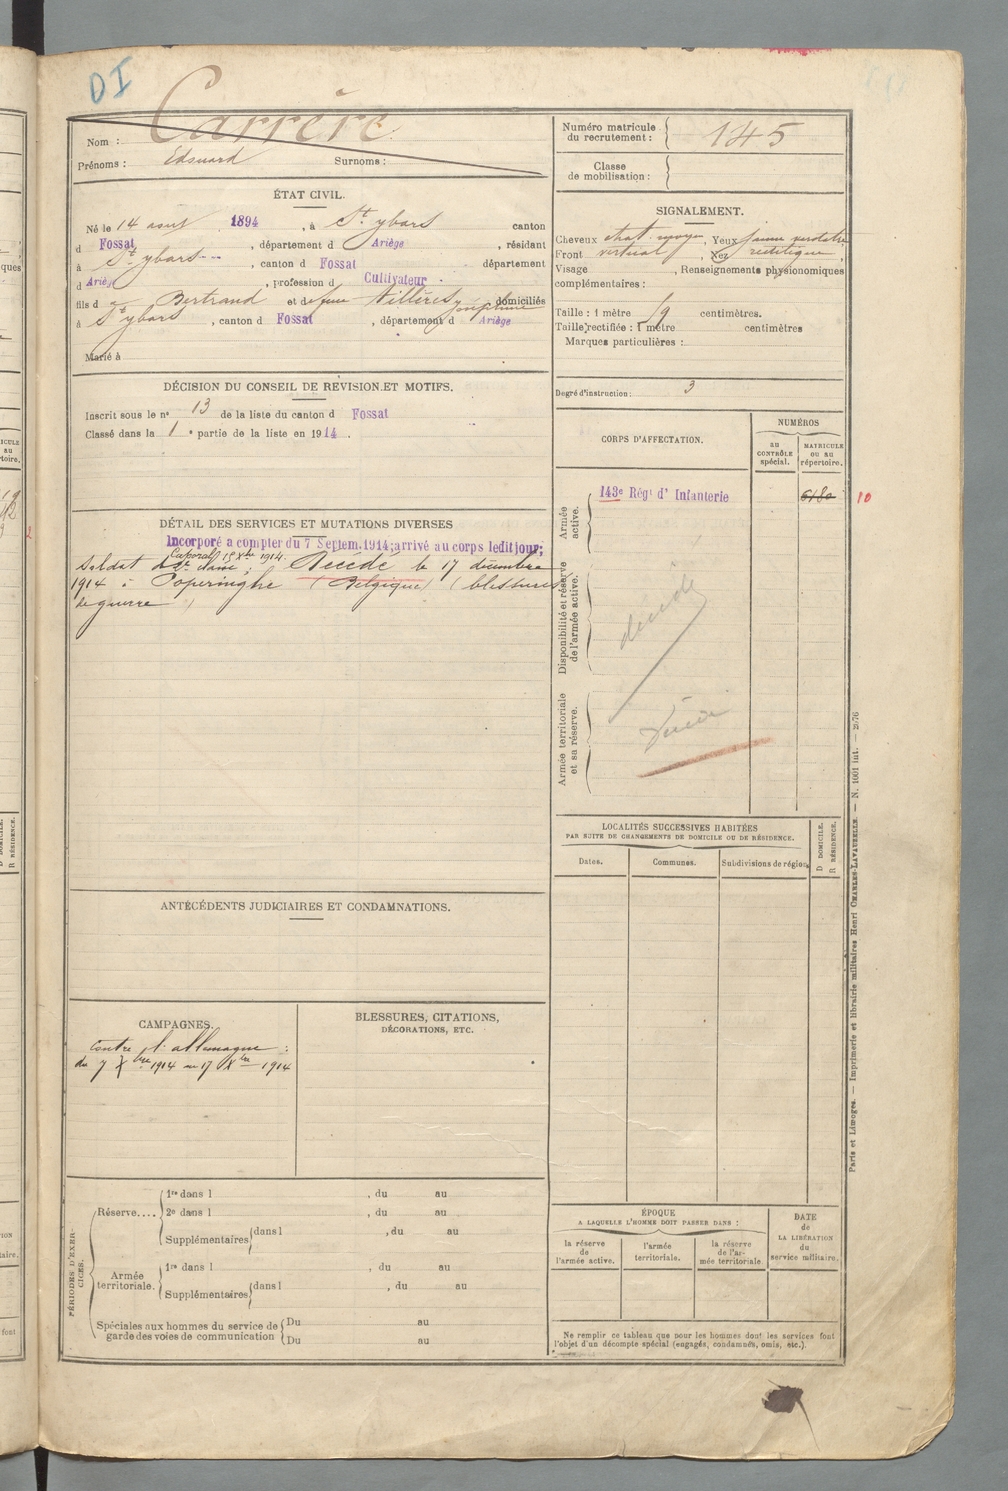 DI
Nom : Carrère
Prénoms : Edouard Surnoms :
Numéro matricule du recrutement : 145
Classe de mobilisation :
ÉTAT CIVIL.
Né le 14 aout 1894, à St ybars canton
d Fossat, département d Ariège, résidant
à St ybars, canton d Fossat département
d Ariège, profession d Cultivateur
fils d Bertrand et de feue Joséphine domiciliés
à St ybars, canton d Fossat, département d Ariège
Marié à
SIGNALEMENT.
Cheveux chat. moyen, Yeux jaune verdatre
Front vertical, Nez rectiligne,
Visage , Renseignements physionomiques
complémentaires :
Taille : 1 mètre 59 centimètres.
Taille rectifiée : 1 mètre centimètres
Marques particulières :
Degré d'instruction : 3
DÉCISION DU CONSEIL DE REVISION ET MOTIFS.
Inscrit sous le nº 13 de la liste du canton d Fossat
Classé dans la 1e partie de la liste en 1914.
DÉTAIL DES SERVICES ET MUTATIONS DIVERSES
Incorporé a compter du 7 Septem.1914; arrivé au corps ledit jour;
Caporal 1914.
Soldat de 2e classe ; Décédé le 17 décembre
1914 à Poperinghe (Belgique) (blessures
de guerre)
CORPS D'AFFECTATION.
NUMÉROS
au CONTRÔLE spécial.
MATRICULE ou au répertoire.
Armée active.
143e Régt d' Infanterie
6180
10
Disponibilité et réserve de l'armée active.
décédé
Armée territoriale et sa réserve.
LOCALITÉS SUCCESSIVES HABITÉES
PAR SUITE DE CHANGEMENTS DE DOMICILE OU DE RÉSIDENCE.
Dates.
Communes.
Subdivisions de région.
D DOMICILE.
R RÉSIDENCE.
ANTÉCÉDENTS JUDICIAIRES ET CONDAMNATIONS.
CAMPAGNES.
Contre l'allemagne :
du 7 7bre 1914 au 17 Xbre 1914
BLESSURES, CITATIONS,
DÉCORATIONS, ETC.
PÉRIODES D'EXERCICES.
Réserve....
1re dans l , du au
2e dans l , du au
Supplémentaires dans l , du au
Armée territoriale.
1re dans l , du au
Supplémentaires dans l , du au
Spéciales aux hommes du service de garde des voies de communication
Du au
Du au
ÉPOQUE
A LAQUELLE L'HOMME DOIT PASSER DANS :
la réserve de l'armée active.
l'armée territoriale.
la réserve de l'armée territoriale.
DATE de LA LIBÉRATION du service militaire.
Ne remplir ce tableau que pour les hommes dont les services font
l'objet d'un décompte spécial (engagés, condamnés, omis, etc.).
Paris et Limoges. — Imprimerie et librairie militaires Henri CHARLES-LAVAUZELLE. — N. 1001 int. — 2/76